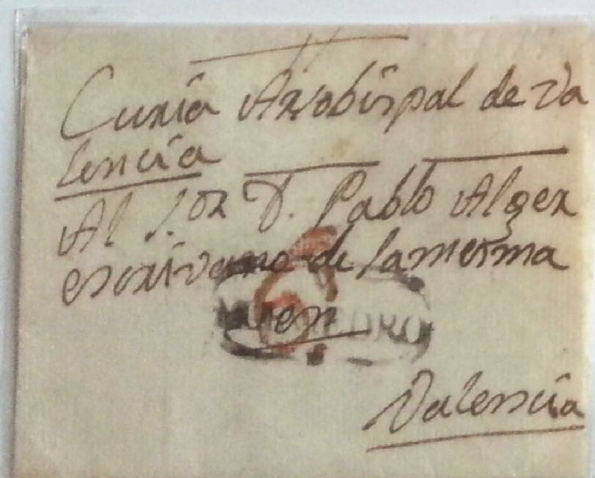 Curia Arzobispal de Va
lencia
Al S.or D. Pablo Alger
escrivano de la mesma
en
Valencia